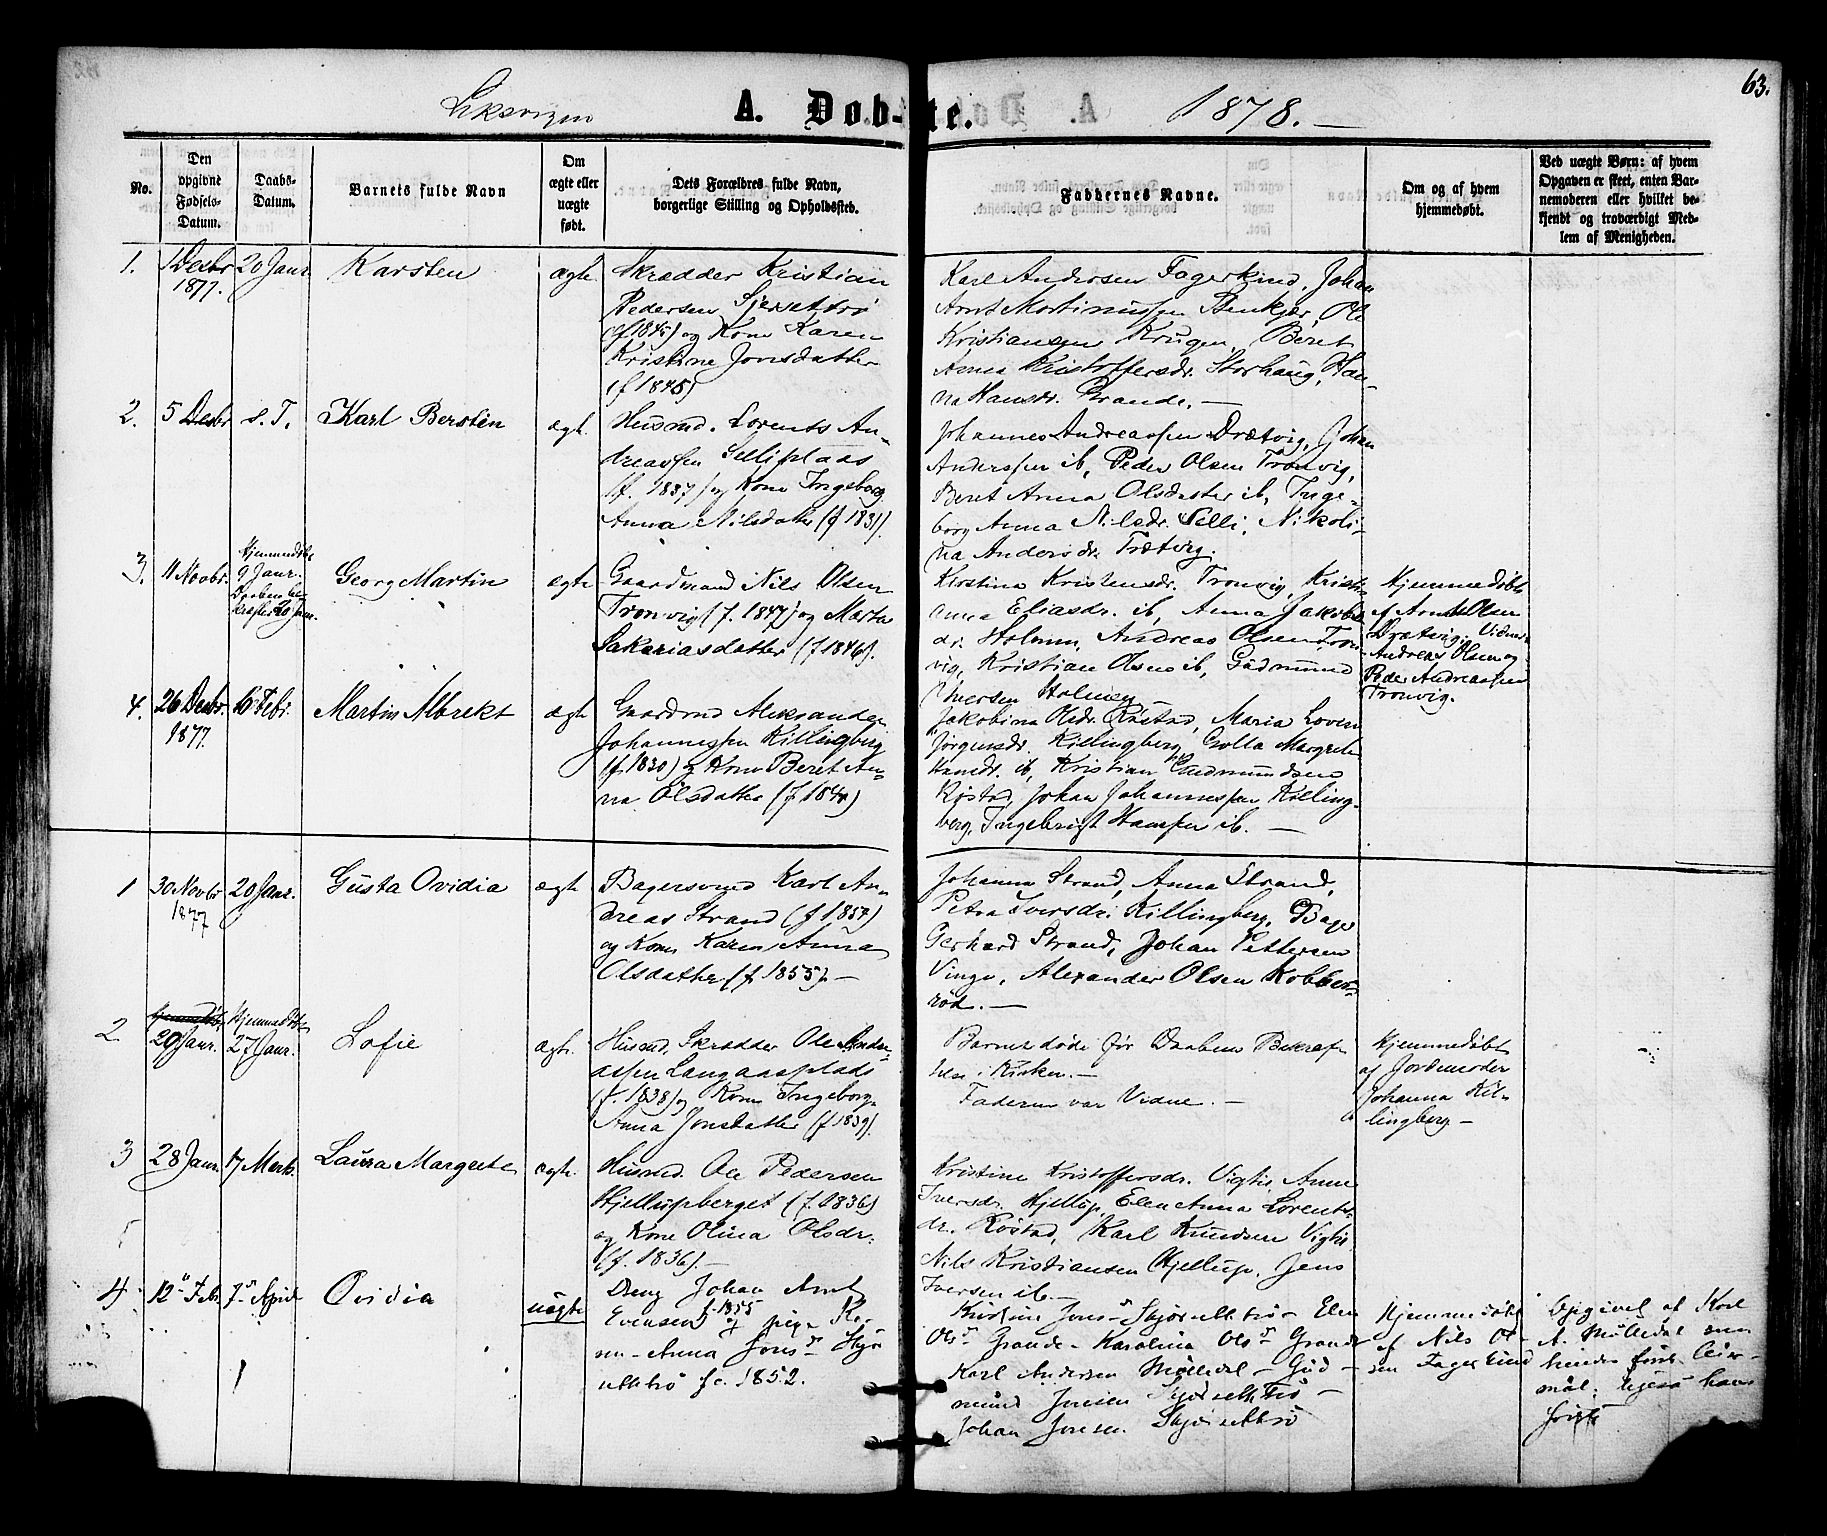 63.
Leksvigen
A. Døb-te.
1878.
No.
Den opgivne Fødsels-Datum.
Daabs-Datum.
Barnets fulde Navn
Om ægte eller uægte født.
Dets Forældres fulde Navn, borgerlige Stilling og Opholdssted.
Faddernes Navne.
Om og af hvem hjemmedøbt.
Ved uægte Børn: af hvem Opgaven er skeet, enten Barnemoderen eller hvilket bekjendt og troværdigt Medlem af Menigheden.
1. 1 Decbr 1877. 20 Janr. Karsten ægte
Skrædder Kristian
Pedersen
(f 1845) og Kone Karen
Kristine Jonsdatter
(f 1845)
Karl Andersen Fagerkind, Johan
Arnt Martinussen Ole
Kristiansen Beret
Anna Kristoffersdr. Storhaug, Han-
na Hansdr. Grande. —
2. 5 Decbr s. T. Karl Bersten ægt.
Husmd. Lorents An-
dreassen Selliplads
(f. 1837) og Kone Ingeborg
Anna Nilsdatter (f 1831).
Johannes Andreassen Drætvig, Johan
Anderssen ib, Peder Olsen Trønvig,
Beret Anna Olsdatter ib, Inge-
borg Anna Nilsdr. Selli, Nikoli-
na Andersdr. Trætvig.
3. 11 Novbr. Hjemmedøbt
9 Janr.
Daaben be-
kræftet 20 Janr.
Georg Martin ægte
Gaardmand Nils Olsen
Tronvig (f. 1847) og Marta
Sakariasdatter (f 1846).
Kristina Kristensdr. Tronvig, Kristi-
anna Eliasdr. ib, Anna Jakobs-
dr. Holmen, Andreas Olsen Tron-
vig, Kristian Olsen ib, Gudmund
Iversen Holmen
Hjemmedøbt
af Arnt Olsen
Drætvig. Vidner
Andreas Olsen og
Peder Andreassen
Tronvig.
4. 26 Decbr. 1877. Febr. Martin Albrekt ægte
Gaardmd Aleksander
Johannessen Killingberg
(f. 1830) og Kone Beret An-
na Olsdatter (f 1840)
Jakobina Olsdr. Røstad, Maria Lovise
Jørgensdr. Killingberg, Golla Margrete
Hansdr. ib, Kristian Gudmundsen
Røstad, Johan Johannessen Killing-
berg, Ingebrigt Hanssen ib. —
1 30 Novbr 1877 20 Janr. Gusta Ovidia ægte
Bagersvend Karl An-
dreas Strand (f 1854)
og Kone Karen Anna
Olsdatter (f. 1855). —
Johanna Strand, Anna Strand,
Petra Iversdr. Killingberg, Bager
Gerhard Strand, Johan Pettersen
Vinge, Alexander Olsen Kobber-
rød. —
2. Hjemmedøbt
20 Janr. Hjemmedøbt
27 Janr. Sofie ægte.
Husmd. Skrædder Ole Andre-
assen Langaasplads
(f. 1838) og Kone Ingeborg
Anna Jonsdatter (f 1839).
Barnet døde før Daabens Bekræf-
telse i Kirken. —
Faderen var Vidne. —
Hjemmedøbt
af Jordemoder
Johanna Kil-
lingberg —
3 28 Janr. 17 Marts. Laura Margrete ægte.
Husmd. Ole Pedersen
Hjellupberget (f. 1836)
og Kone Olina Olsdr.
(f. 1836). —
Kristine Kristoffersdr. Vigtil, Anne
Iversdr. Hjellup, Elen Anna Lorents-
dr. Røstad, Karl Knudsen Vigtil
Nils Kristiansen Hjellup, Jens
Iversen ib. —
4 12 Feb. 7 April Ovidia uægte
Dreng Johan Arnt
Evensen f. 1855 og pige Ka-
ren Anna Jonsd
f. 1852.
Kristine Jons Elen
Olsd Grande - Karolina Olsd Grande
Karl Andersen Mølledal - Gud-
mund Jonsen
Johan Jonsen
Hjemmedøbt
af Nils Ol-
sen Fagerkind
Opgivet af Karl
A. Mølledal som
hendes første leier-
maal; ligesaa hans
første